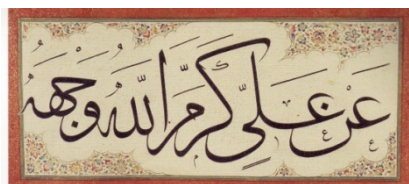 عَنْ عَلِيٍّ كَرَّمَ اللّٰهُ وَجْهَهُ